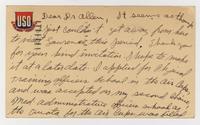 USO
Dear Dr Allen, It seems as though
I just couldn't get away from here
to visit Lawrence this period. Thank you
for your kind invitation. I hope to make
it at a later date. I applied for Physical
training officer school in the Air Corps
and was accepted on my second choice,
Med administrative officer school as
the quota for the Air Corps was filled